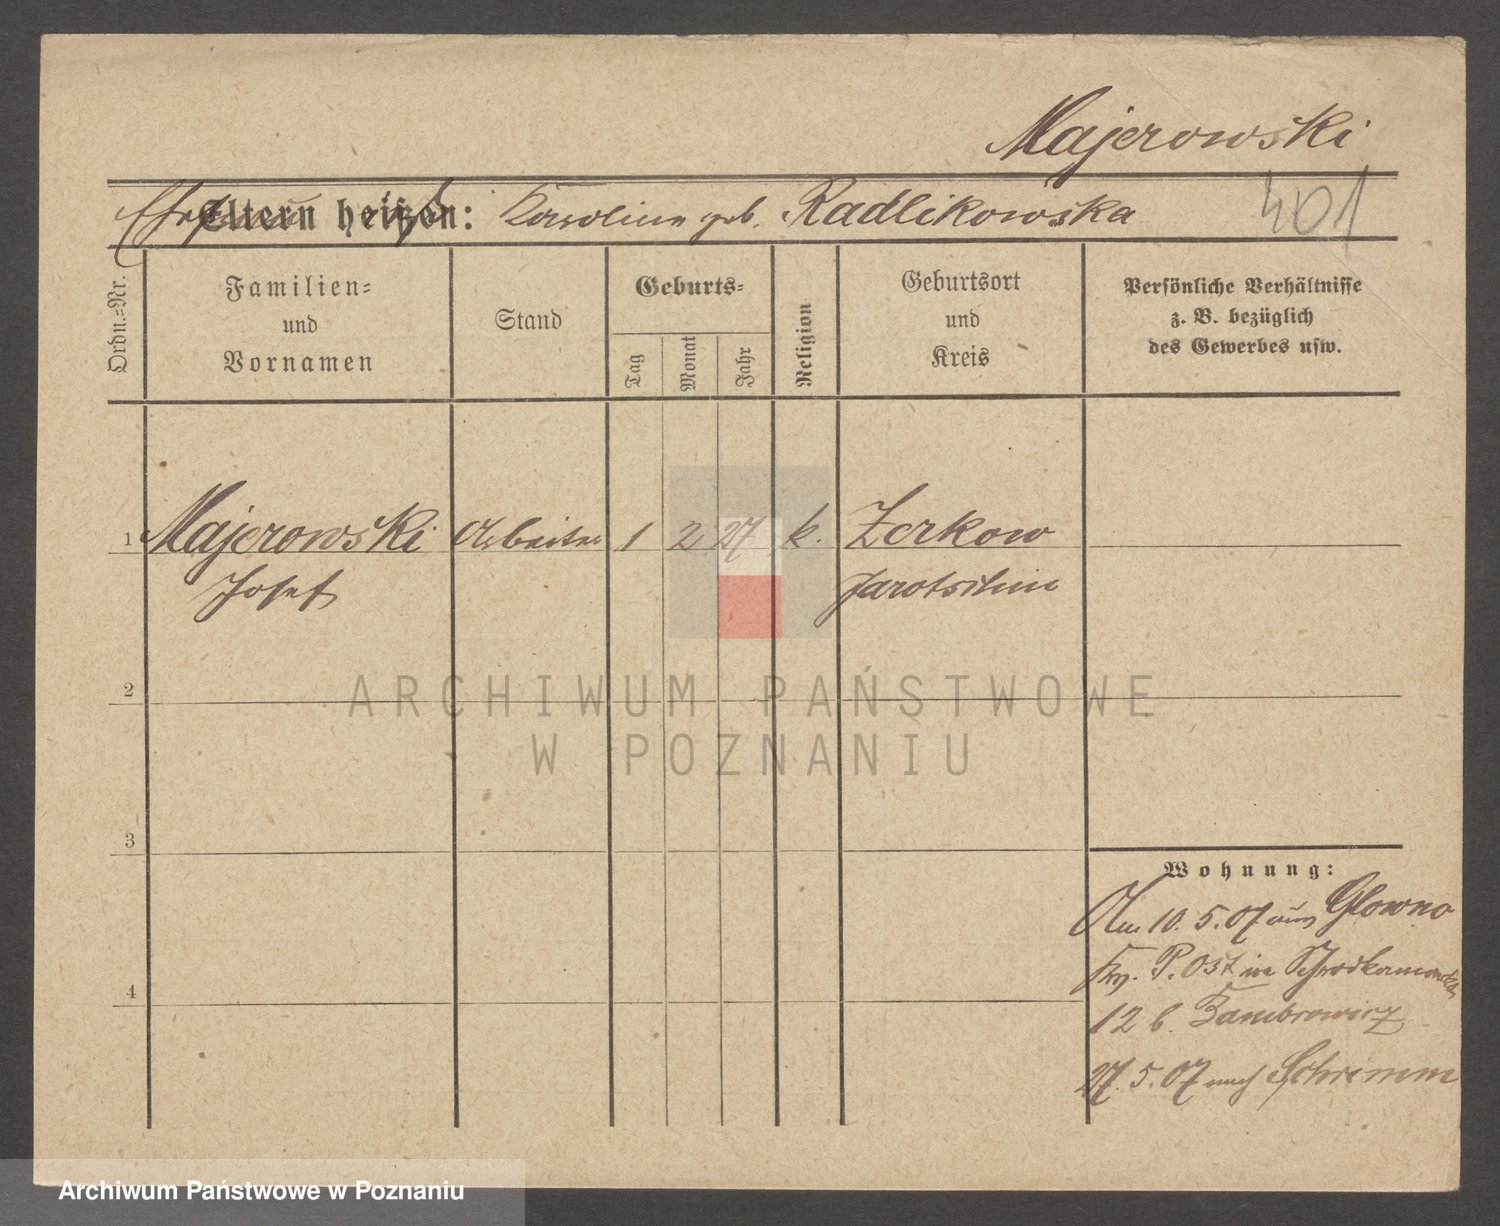 Majerowski
Eltern heißen: Karoline geb. Radlikowska
401
Ordn.-Nr.
Familien-
und
Vornamen
Stand
Geburts-
Tag
Monat
Jahr
Religion
Geburtsort
und
Kreis
Persönliche Verhältnisse
z. B. bezüglich
des Gewerbes usw.
1 Majerowski Arbeiter 1 2 27 k. Zerkow
Josef Jarotschin
2
ARCHIWUM PAŃSTWOWE
W POZNANIU
3
Wohnung:
Am 10. 5. 07 aus Glowno
Kr. P. Ost in
4
12 b.
27. 5. 07 nach Schrimm
Archiwum Państwowe w Poznaniu